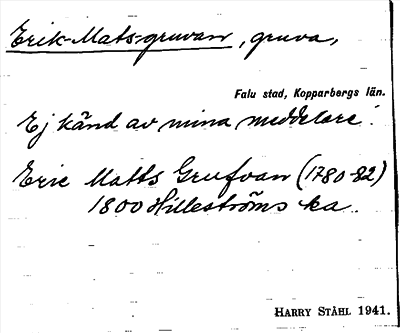 Erik-Mats-gruvan, gruva,
Falu stad, Kopparbergs län.
Ej känd av mina meddelare.
Eric Matts Grufvan (1780-82)
1800 Hilleströms ka.
HARRY STÅHL 1941.